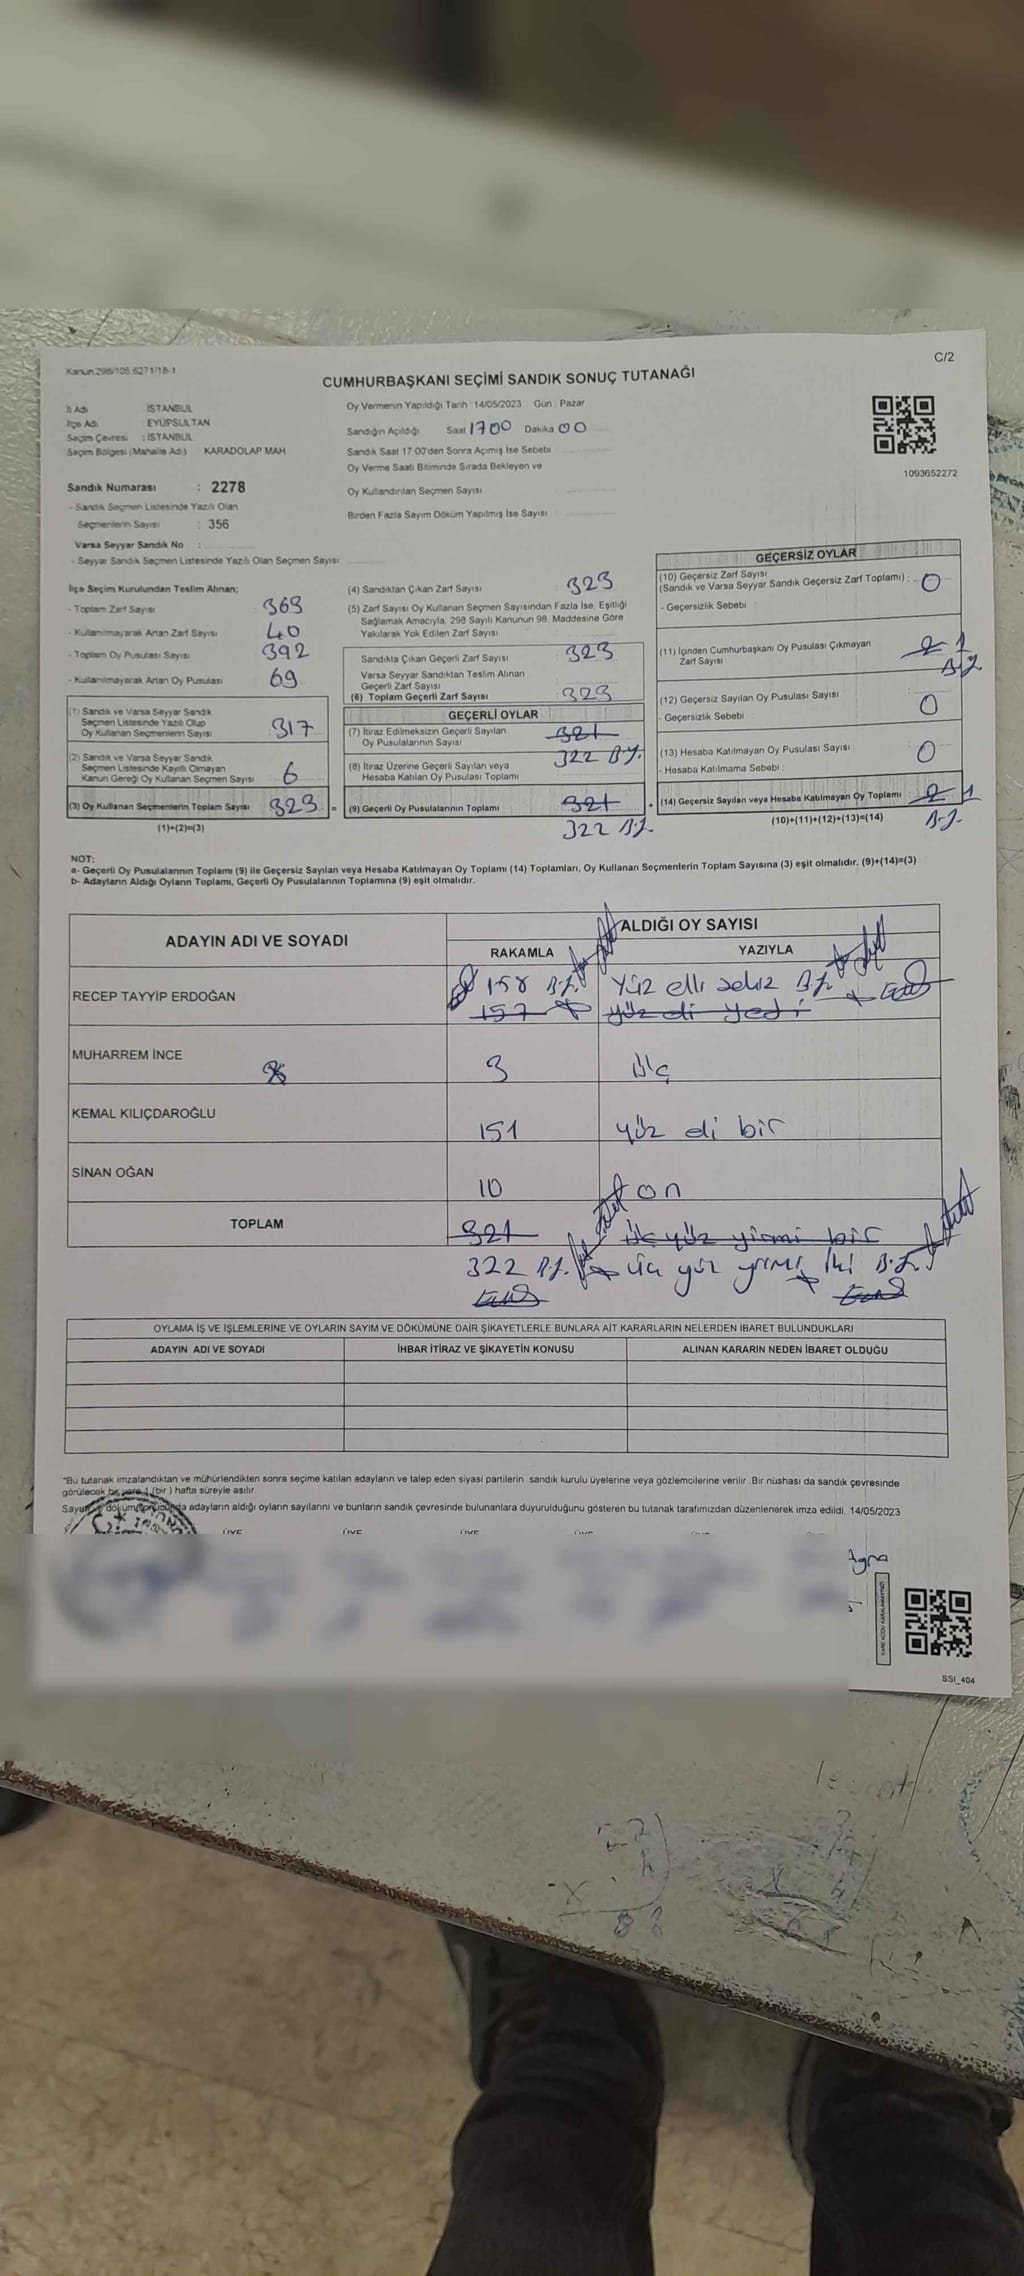 Kanun 298/105 6271/18-1
C/2
CUMHURBAŞKANI SEÇİMİ SANDIK SONUÇ TUTANAĞI
İl Adı İSTANBUL
İlçe Adı EYÜPSULTAN
Seçim Çevresi : İSTANBUL
Seçim Bölgesi (Mahalle Adı) : KARADOLAP MAH.
Oy Vermenin Yapıldığı Tarih :14/05/2023 Gün : Pazar
Sandığın Açıldığı Saat 1700 Dakika 00
Sandık Saat 17.00'den Sonra Açımış İse Sebebi
Oy Verme Saati Bitiminde Sırada Bekleyen ve
Oy Kullandırılan Seçmen Sayısı
Birden Fazla Sayım Döküm Yapılmış İse Sayısı
1093652272
Sandık Numarası : 2278
- Sandık Seçmen Listesinde Yazılı Olan
Seçmenlerin Sayısı : 356
Varsa Seyyar Sandık No :
- Seyyar Sandık Seçmen Listesinde Yazılı Olan Seçmen Sayısı:
İlçe Seçim Kurulundan Teslim Alınan;
- Toplam Zarf Sayısı 363
- Kullanılmayarak Artan Zarf Sayısı 40
- Toplam Oy Pusulası Sayısı 392
- Kullanılmayarak Artan Oy Pusulası 69
(1) Sandık ve Varsa Seyyar Sandık
Seçmen Listesinde Yazılı Olup
Oy Kullanan Seçmenlerin Sayısı 317
(2) Sandık ve Varsa Seyyar Sandık
Seçmen Listesinde Kayıtlı Olmayan
Kanun Gereği Oy Kullanan Seçmen Sayısı 6
(3) Oy Kullanan Seçmenlerin Toplam Sayısı 323 =
(1)+(2)=(3)
(4) Sandıktan Çıkan Zarf Sayısı : 323
(5) Zarf Sayısı Oy Kullanan Seçmen Sayısından Fazla İse, Eşitliği
Sağlamak Amacıyla, 298 Sayılı Kanunun 98. Maddesine Göre
Yakılarak Yok Edilen Zarf Sayısı
Sandıkta Çıkan Geçerli Zarf Sayısı : 323
Varsa Seyyar Sandıktan Teslim Alınan
Geçerli Zarf Sayısı
(6) Toplam Geçerli Zarf Sayısı : 323
GEÇERLİ OYLAR
(7) İtiraz Edilmeksizin Geçerli Sayılan 321
Oy Pusulalarının Sayısı 322 B.J.
(8) İtiraz Üzerine Geçerli Sayılan veya
Hesaba Katılan Oy Pusulası Toplamı
(9) Geçerli Oy Pusulalarının Toplamı 321 +
322 B.J.
GEÇERSİZ OYLAR
(10) Geçersiz Zarf Sayısı
(Sandık ve Varsa Seyyar Sandık Geçersiz Zarf Toplamı) : 0
- Geçersizlik Sebebi :
(11) İçinden Cumhurbaşkanı Oy Pusulası Çıkmayan 2 1
Zarf Sayısı B.J.
(12) Geçersiz Sayılan Oy Pusulası Sayısı 0
- Geçersizlik Sebebi :
(13) Hesaba Katılmayan Oy Pusulası Sayısı 0
- Hesaba Katılmama Sebebi :
(14) Geçersiz Sayılan veya Hesaba Katılmayan Oy Toplamı 2 1
(10)+(11)+(12)+(13)=(14) B.J.
NOT:
a- Geçerli Oy Pusulalarının Toplamı (9) ile Geçersiz Sayılan veya Hesaba Katılmayan Oy Toplamı (14) Toplamları, Oy Kullanan Seçmenlerin Toplam Sayısına (3) eşit olmalıdır. (9)+(14)=(3)
b- Adayların Aldığı Oyların Toplamı, Geçerli Oy Pusulalarının Toplamına (9) eşit olmalıdır.
ADAYIN ADI VE SOYADI ALDIĞI OY SAYISI
RAKAMLA YAZIYLA
RECEP TAYYİP ERDOĞAN 158 B.J. Yüz elli sekiz B.J.
157 yüz eli yedi
MUHARREM İNCE 3 üç
KEMAL KILIÇDAROĞLU 151 yüz eli bir
SİNAN OĞAN 10 on
TOPLAM 321 üç yüz yirmi bir
322 B.J. üç yüz yirmi iki B.J.
OYLAMA İŞ VE İŞLEMLERİNE VE OYLARIN SAYIM VE DÖKÜMÜNE DAİR ŞİKAYETLERLE BUNLARA AİT KARARLARIN NELERDEN İBARET BULUNDUKLARI
ADAYIN ADI VE SOYADI İHBAR İTİRAZ VE ŞİKAYETİN KONUSU ALINAN KARARIN NEDEN İBARET OLDUĞU
*Bu tutanak imzalandıktan ve mühürlendikten sonra seçime katılan adayların ve talep eden siyasi partilerin sandık kurulu üyelerine veya gözlemcilerine verilir. Bir nüshası da sandık çevresinde
görülecek bir yere 1 (bir) hafta süreyle asılır.
Sayım ve döküm sonucunda adayların aldığı oyların sayılarını ve bunların sandık çevresinde bulunanlara duyurulduğunu gösteren bu tutanak tarafımızdan düzenlenerek imza edildi. 14/05/2023
ÜYE ÜYE
SSI_404